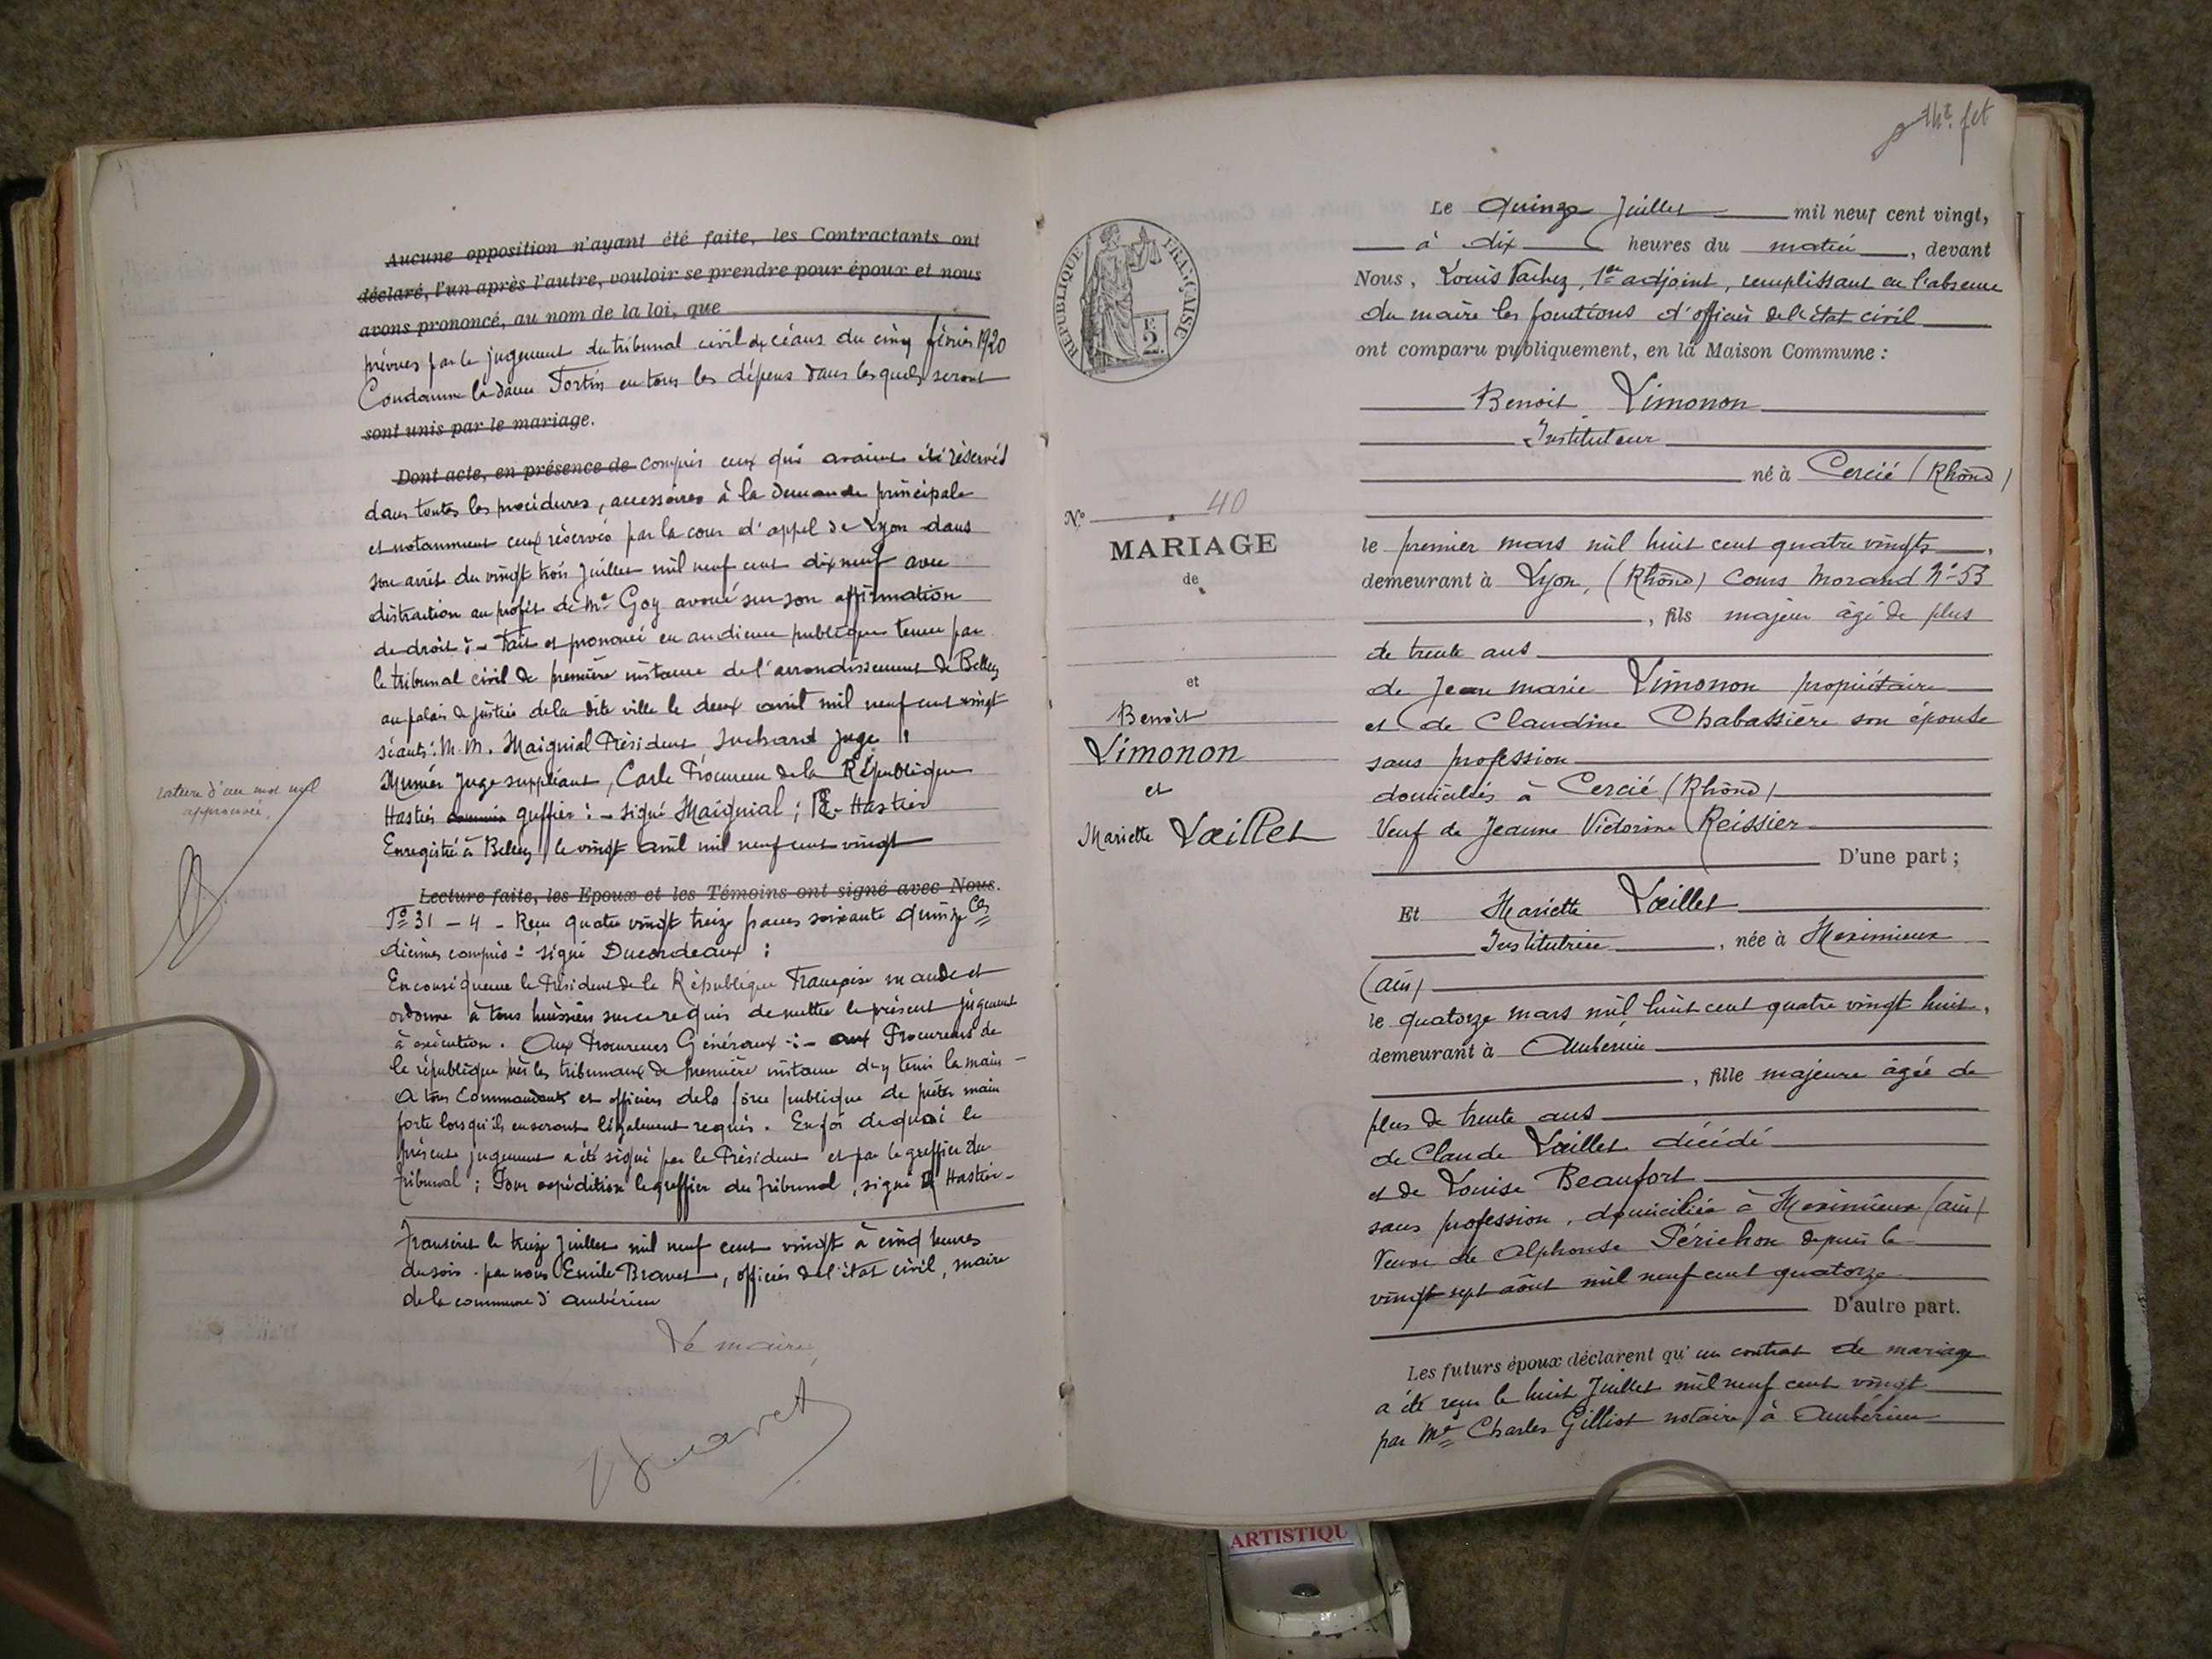 Aucune opposition n'ayant été faite, les Contractants ont
déclaré, l'un après l'autre, vouloir se prendre pour époux et nous
avons prononcé, au nom de la loi, que
prévues par le jugement du tribunal civil de céans du cinq février 1920
Condamne la dame Fortin en tous les dépens dans lesquels seront
sont unis par le mariage.
Dont acte, en présence de compris ceux qui avaient été réservés
dans toutes les procédures, accessoires à la demande principale
et notamment ceux réservés par la cour d'appel de Lyon dans
son arrêt du vingt trois Juillet mil neuf cent dix neuf avec
distraction au profit de Me Goy avoué sur son affirmation
de droit :- Fait et prononcé en audience publique tenue par
le tribunal civil de première instance de l'arrondissement de Belley
au palais de justice de la dite ville le deux avril mil neuf cent vingt
séants : M.M. Maignial Président Suchard Juge
Munier Juge suppléant, Carle Procureur de la République
Hastier greffier :- signé Maignial ; Hastier
Enregistré à Belley le vingt avril mil neuf cent vingt
rature d'un mot nul
approuvée.
Lecture faite, les Epoux et les Témoins ont signé avec Nous.
Fo 31 - 4 - Reçu quatre vingt treize francs soixante quinze Ces
décimes compris : signé Ducordeaux :
En conséquence le Président de la République Française mande et
ordonne à tous huissiers sur ce requis de mettre le présent jugement
à exécution. Aux Procureurs Généraux :- aux Procureurs de
la république près les tribunaux de première instance d'y tenir la main -
A tous Commandants et officiers de la force publique de prêter main
forte lorsqu'ils en seront légalement requis. En foi de quoi le
présent jugement a été signé par le Président et par le greffier du
tribunal ; Pour expédition le greffier du Tribunal, signé Hastier -
Transcrit le treize Juillet mil neuf cent vingt à cinq heures
du soir par nous Emile Bravet, officier de l'état civil, maire
de la commune d'Ambérieu
Le maire,
Bravet
RÉPUBLIQUE FRANÇAISE
2F.
No 40
MARIAGE
de
et
Benoit
Limonon
et
Mariette Lœillet
Le quinze Juillet mil neuf cent vingt,
à dix heures du matin, devant
Nous, Louis Vachez, 1er adjoint, remplissant en l'absence
du maire les fonctions d'officier de l'état civil
ont comparu publiquement, en la Maison Commune :
Benoit Limonon
Instituteur
né à Cercié (Rhône)
le premier mars mil huit cent quatre vingts,
demeurant à Lyon, (Rhône) Cours Morand No 53
, fils majeur âgé de plus
de trente ans
de Jean Marie Limonon propriétaire
et de Claudine Chabassière son épouse
sans profession
domiciliés à Cercié (Rhône)
Veuf de Jeanne Victorine Reissier
D'une part ;
Et Mariette Lœillet
Institutrice, née à Meximieux
(ain)
le quatorze mars mil huit cent quatre vingt huit,
demeurant à Ambérieu
, fille majeure âgée de
plus de trente ans
de Claude Lœillet décédé
et de Louise Beaufort
sans profession, domiciliée à Meximieux (ain)
Veuve de Alphonse Périchon depuis le
vingt sept août mil neuf cent quatorze
D'autre part.
Les futurs époux déclarent qu'un contrat de mariage
a été reçu le huit Juillet mil neuf cent vingt
par Me Charles Gilliot notaire à Ambérieu
ARTISTIQU